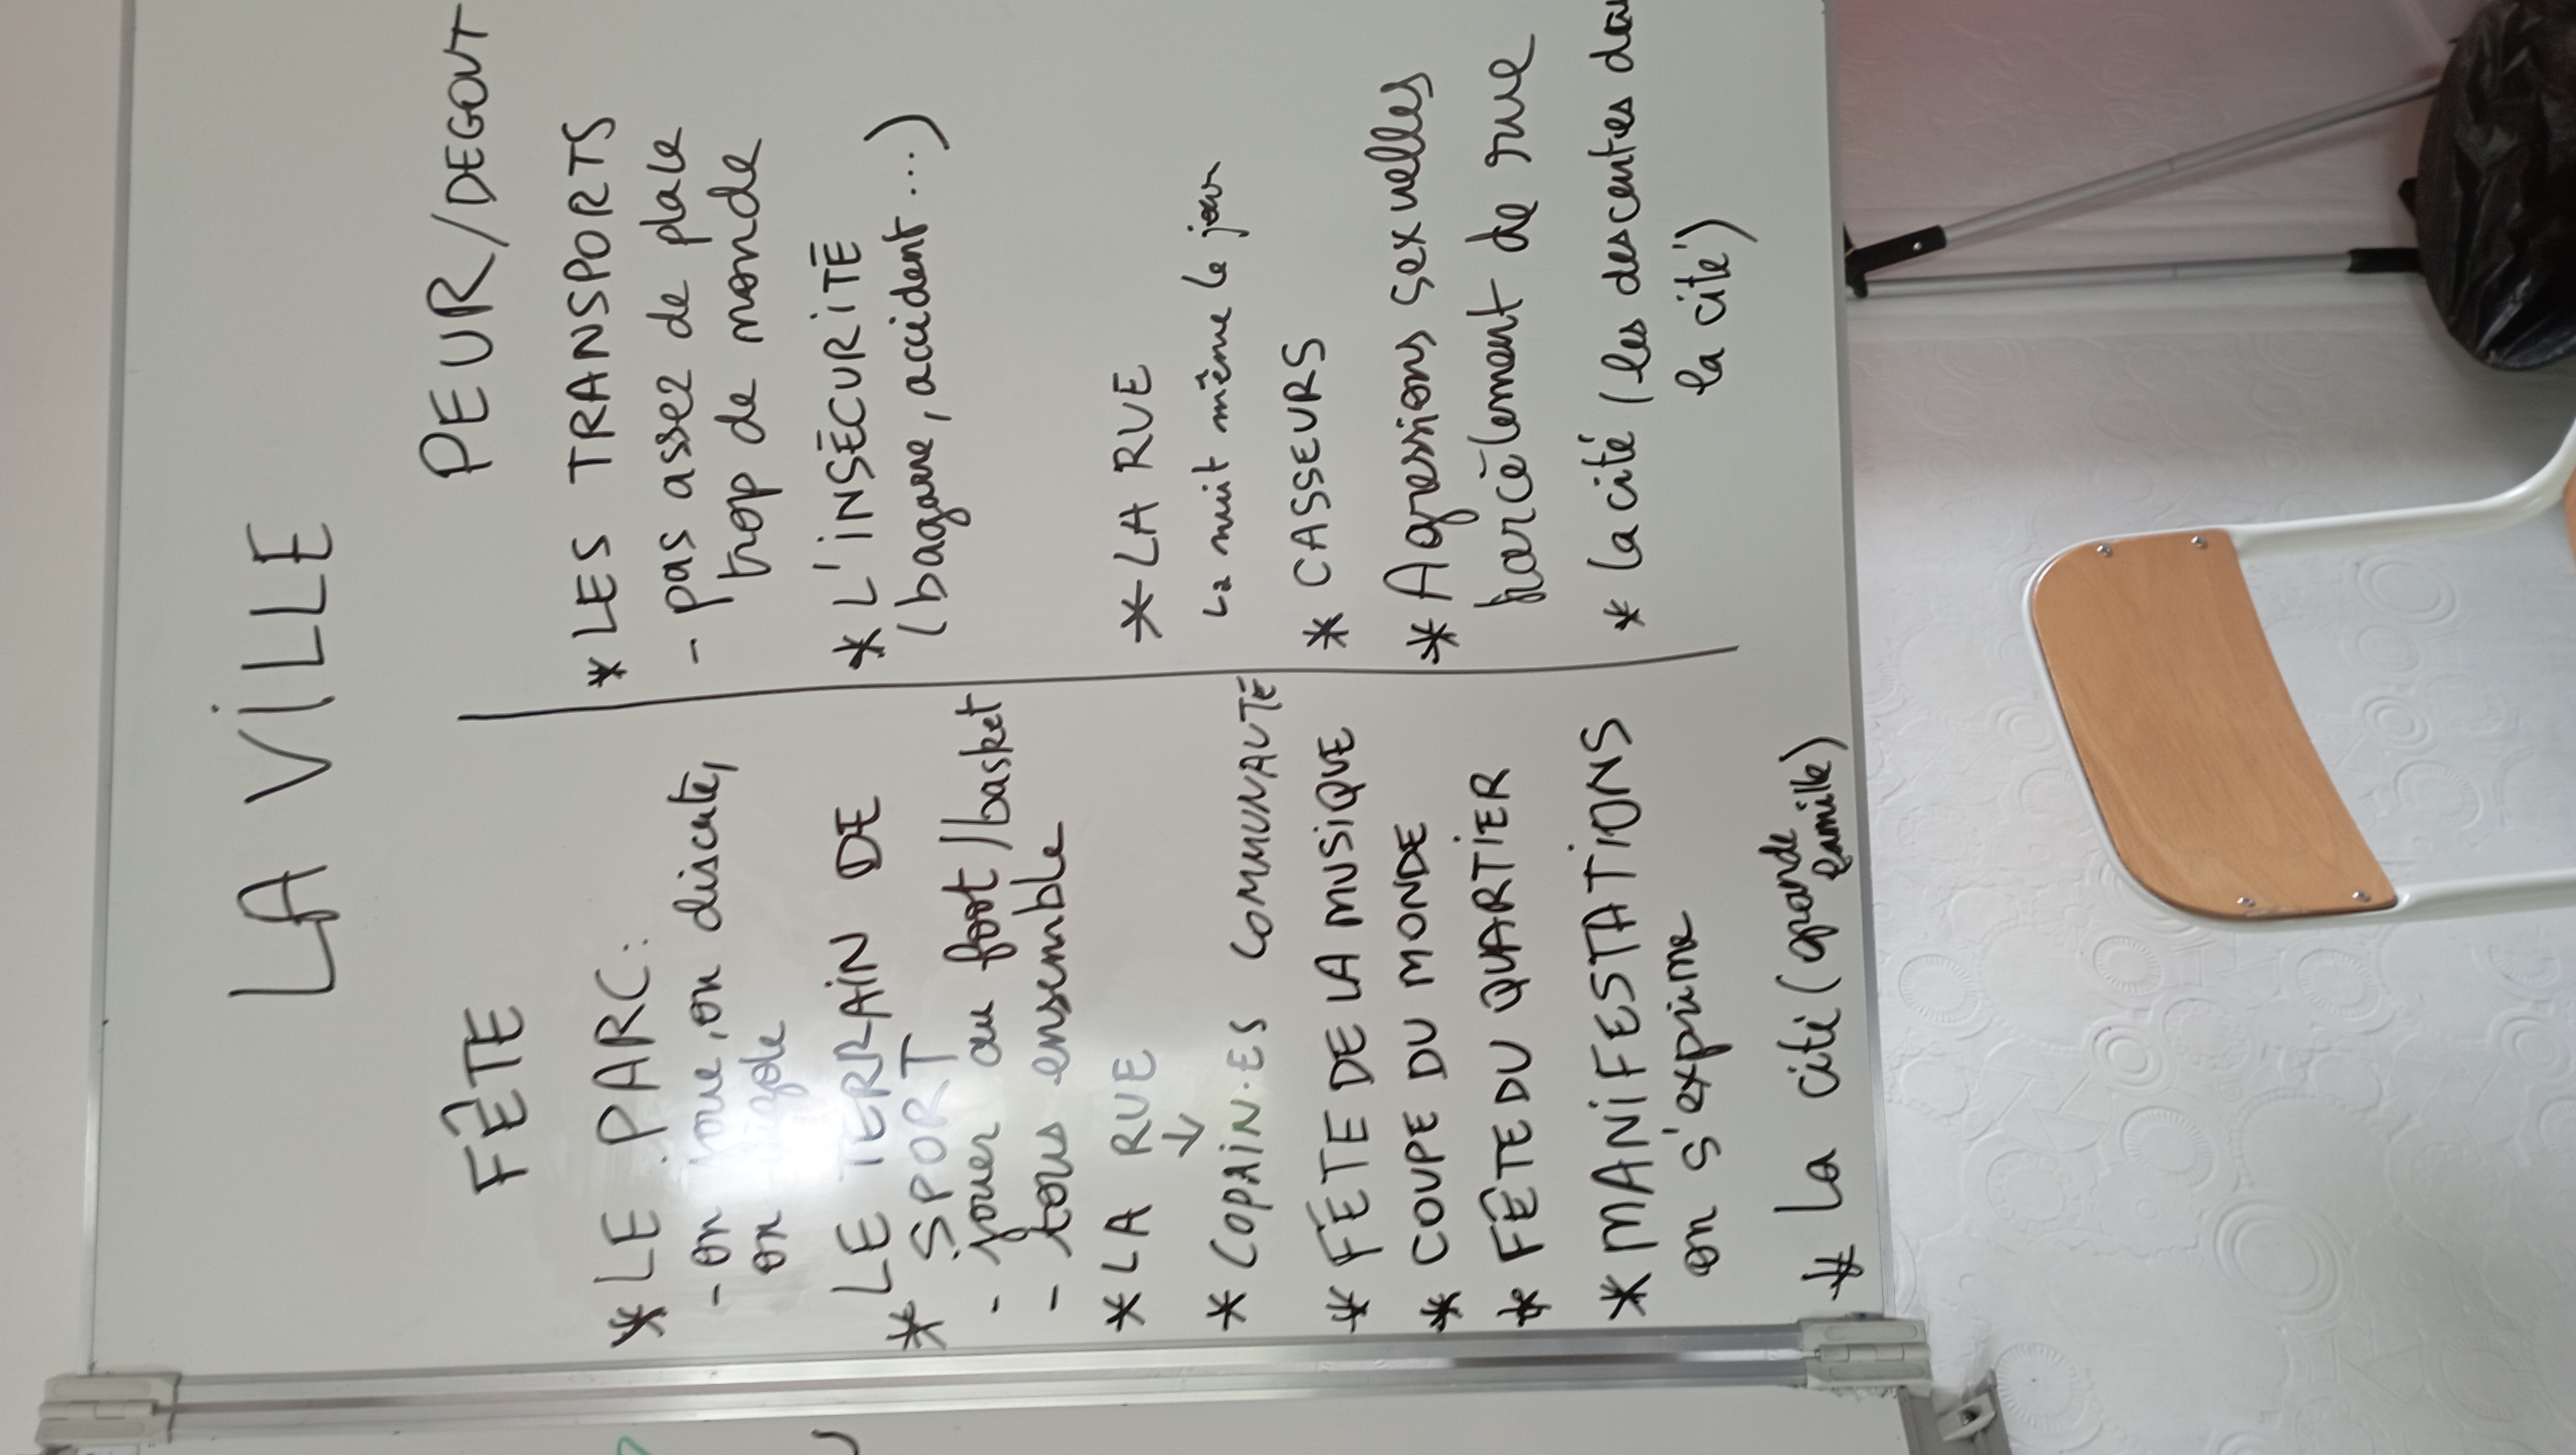 LA VILLE
FÊTE
* LE PARC :
- on joue, on discute,
on rigole
* LE TERRAIN DE
SPORT
- jouer au foot/basket
- tous ensemble
* LA RUE
↓
* COPAIN·ES COMMUNAUTÉ
* FÊTE DE LA MUSIQUE
* COUPE DU MONDE
* FÊTE DU QUARTIER
* MANIFESTATIONS
on s'exprime
* La cité (grande
famille)
PEUR/DEGOUT
* LES TRANSPORTS
- pas assez de place
trop de monde
* L'INSÉCURITÉ
(bagarre, accident...)
* LA RUE
↳ nuit même le jour
* CASSEURS
* Agressions sexuelles
harcèlement de rue
* la cité (les descentes da
la cité)